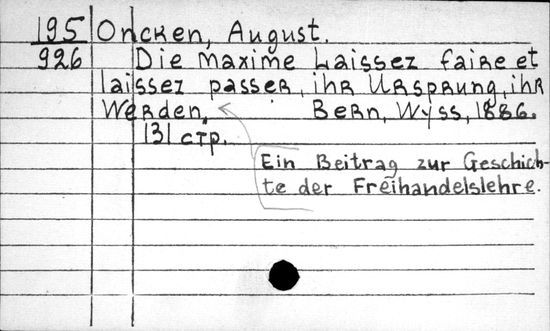 195 Oncken, August.
926 Die Maxime Laissez faire et
laissez passer, ihr Ursprung, ihr
Werden. Bern, Wyss, 1886.
131 стр.
Ein Beitrag zur Geschich-
te der Freihandelslehre.